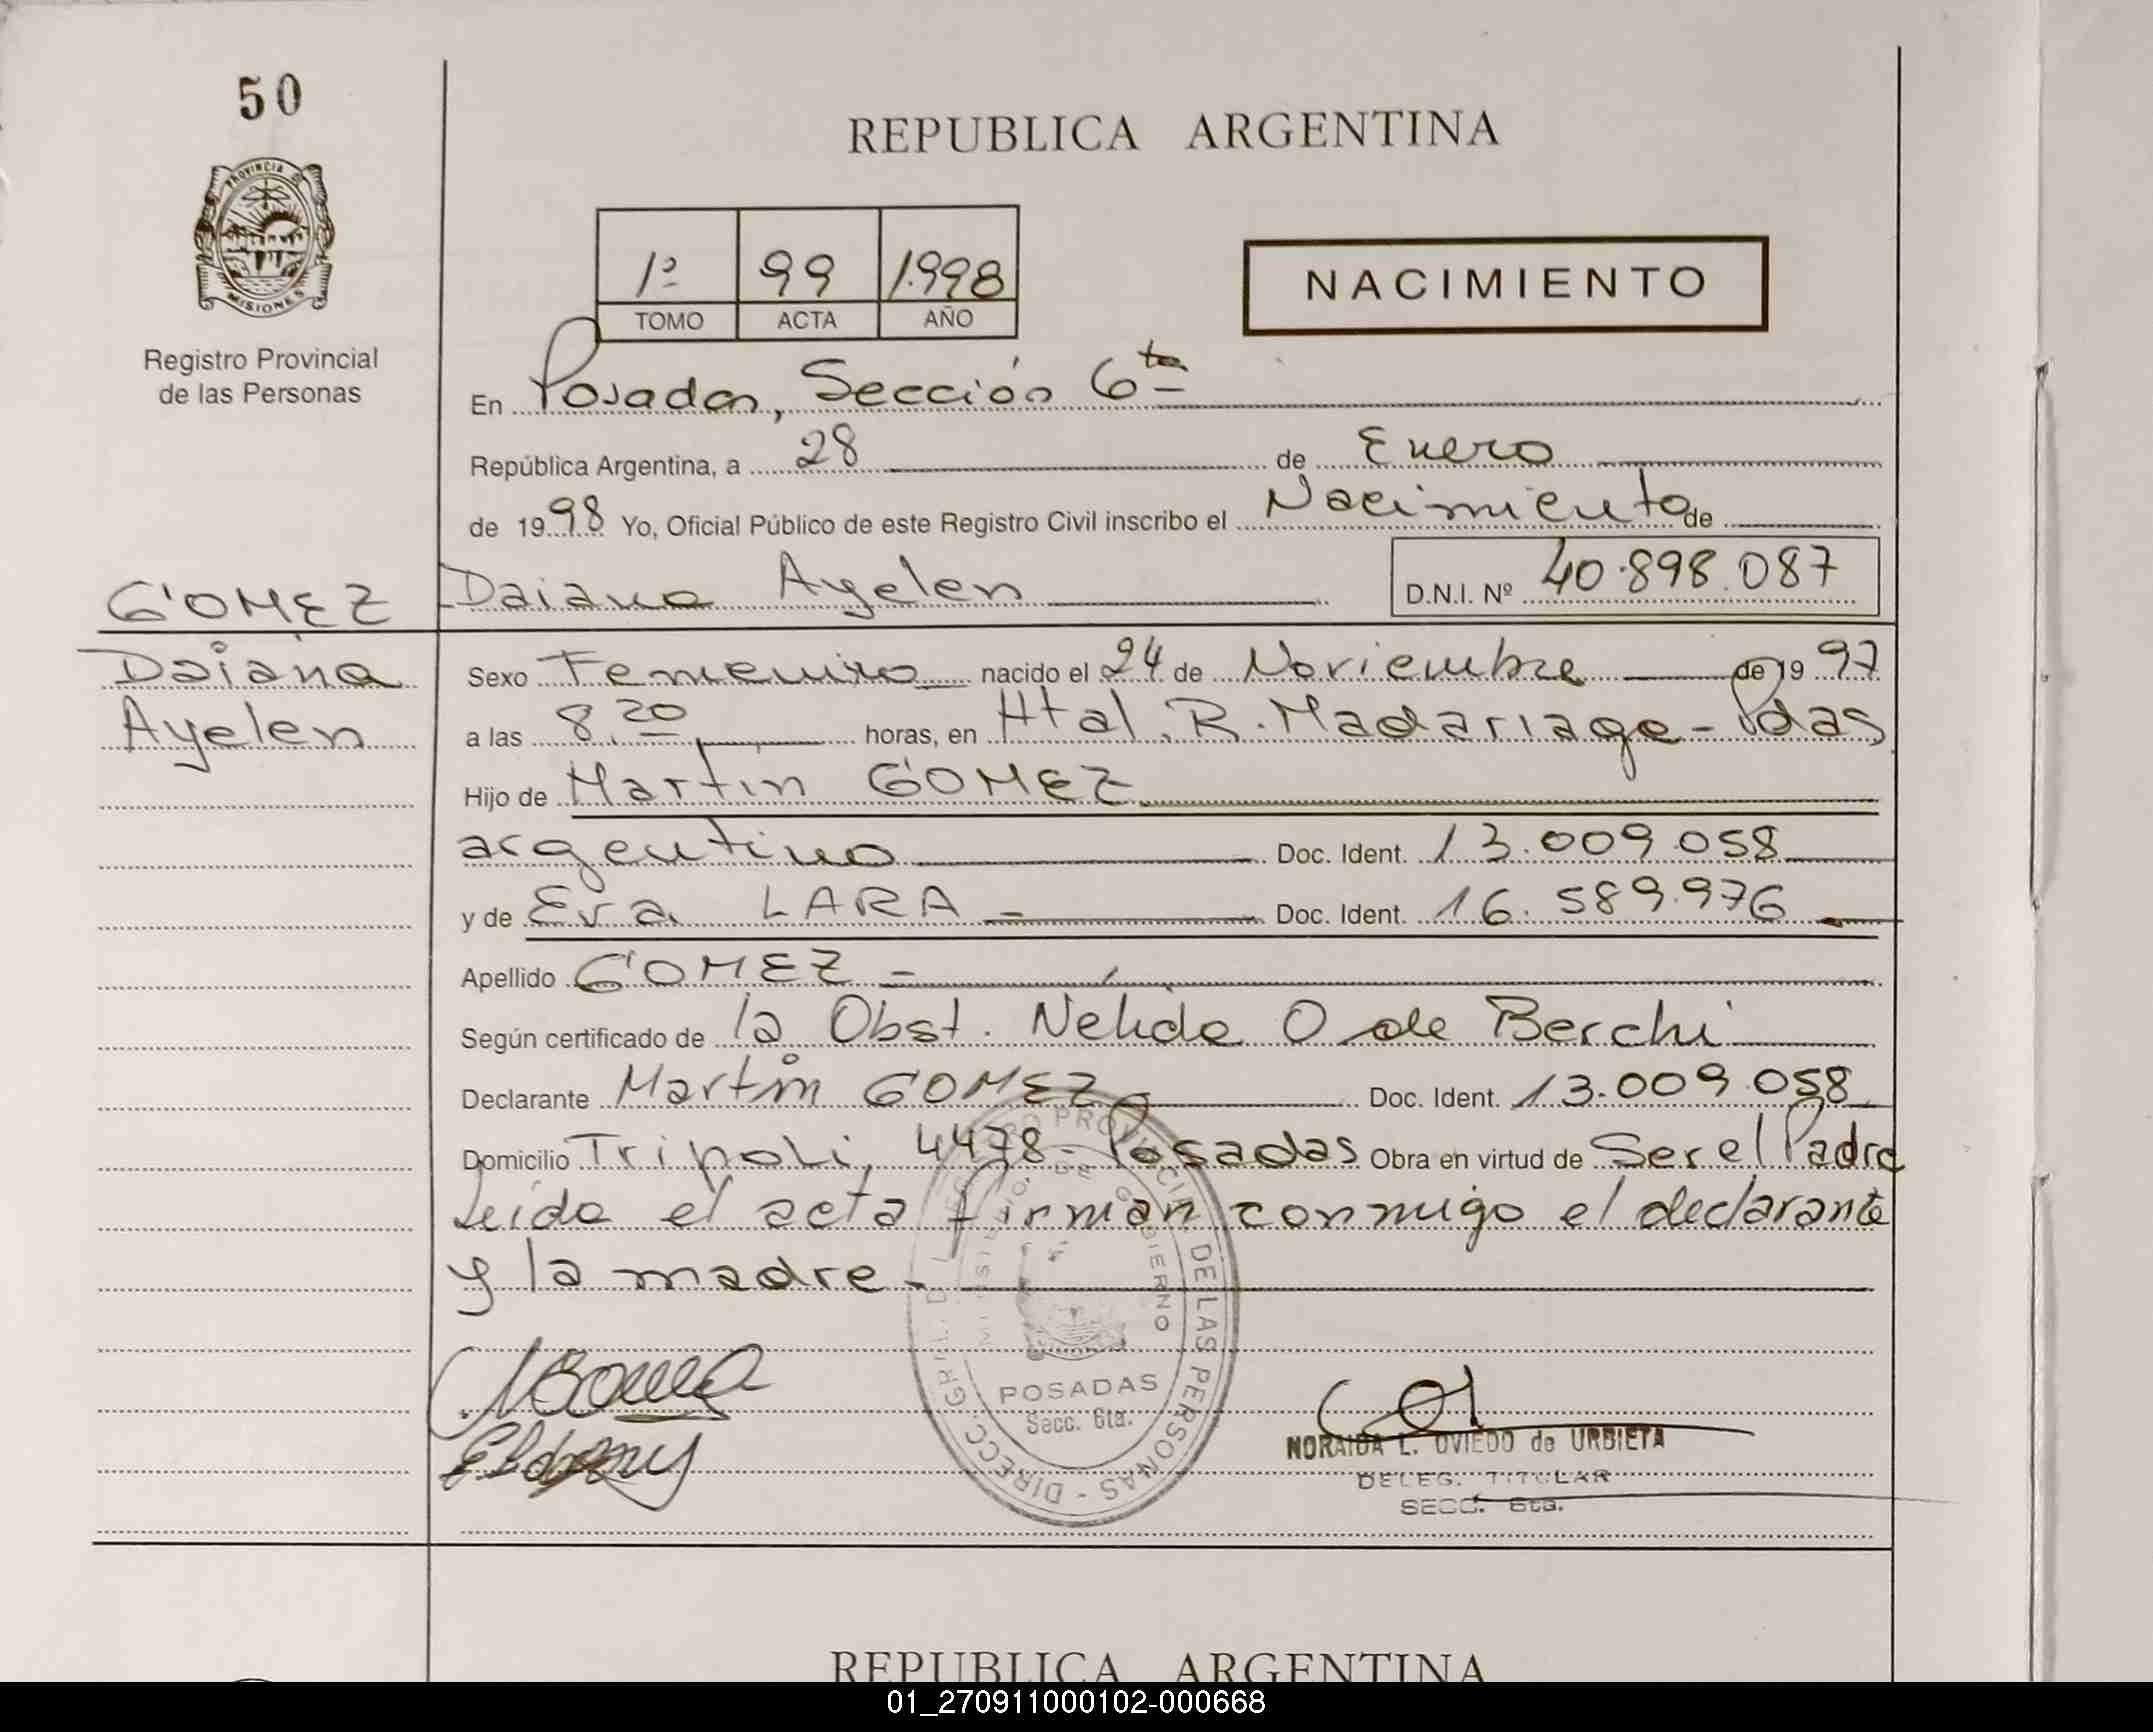 50
REPUBLICA ARGENTINA
PROVINCIA DE
MISIONES
1º 99 1.998
TOMO ACTA AÑO
NACIMIENTO
Registro Provincial
de las Personas
En Posadas, Sección 6ta
República Argentina, a 28 de Enero
de 1998 Yo, Oficial Público de este Registro Civil inscribo el Nacimiento de
GOMEZ Daiana Ayelen D.N.I. Nº 40.898.087
Daiana
Ayelen
Sexo Femenino nacido el 24 de Noviembre de 1997
a las 8.20 horas, en Htal. R. Madariaga - Pdas
Hijo de Martin GOMEZ
argentino Doc. Ident. 13.009.058
y de Eva LARA Doc. Ident. 16.589.976
Apellido GOMEZ
Según certificado de la Obst. Nelida O de Berchi
Declarante Martin GOMEZ Doc. Ident. 13.009.058
Domicilio Tripoli, 4478 - Posadas Obra en virtud de Ser el Padre
Leida el acta firman conmigo el declarante
y la madre.
DIRECC. GRAL. DEL REGISTRO PROVINCIAL DE LAS PERSONAS
MINISTERIO DE GOBIERNO
POSADAS
Secc. 6ta.
NORAIDA L. OVIEDO de URBIETA
DELEG. TITULAR
SECC. 6ta.
REPUBLICA ARGENTINA
01_270911000102-000668